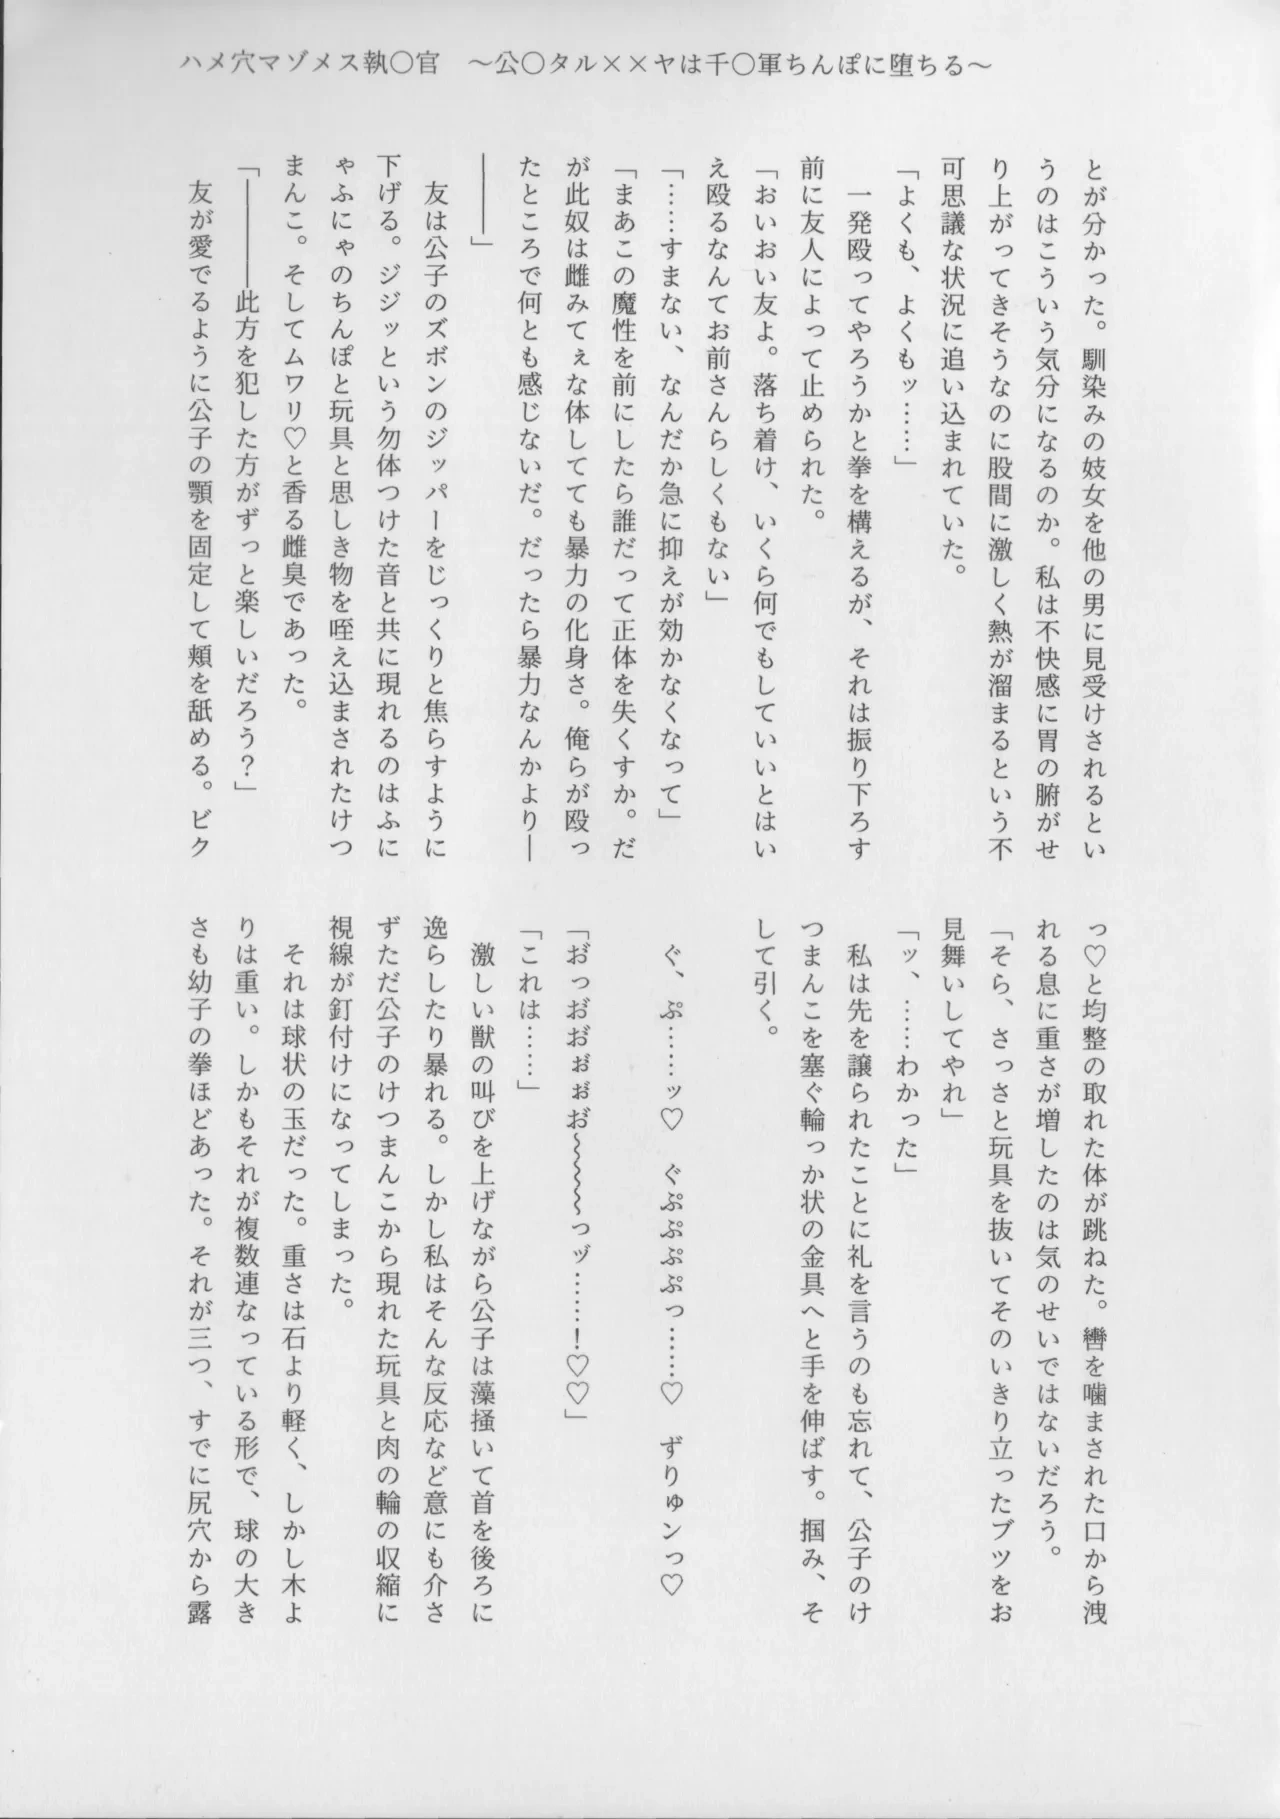 ハメ穴マゾメス執〇官　～公〇タル××ヤは千〇軍ちんぽに堕ちる～
とが分かった。馴染みの妓女を他の男に見受けされるとい
うのはこういう気分になるのか。私は不快感に胃の腑がせ
り上がってきそうなのに股間に激しく熱が溜まるという不
可思議な状況に追い込まれていた。
「よくも、よくもッ……」
　一発殴ってやろうかと拳を構えるが、それは振り下ろす
前に友人によって止められた。
「おいおい友よ。落ち着け、いくら何でもしていいとはい
え殴るなんてお前さんらしくもない」
「……すまない、なんだか急に抑えが効かなくなって」
「まあこの魔性を前にしたら誰だって正体を失くすか。だ
が此奴は雌みてぇな体してても暴力の化身さ。俺らが殴っ
たところで何とも感じないだ。だったら暴力なんかより―
――」
　友は公子のズボンのジッパーをじっくりと焦らすように
下げる。ジジッという勿体つけた音と共に現れるのはふに
ゃふにゃのちんぽと玩具と思しき物を咥え込まされたけつ
まんこ。そしてムワリ♡と香る雌臭であった。
「――――此方を犯した方がずっと楽しいだろう？」
　友が愛でるように公子の顎を固定して頬を舐める。ビク
っ♡と均整の取れた体が跳ねた。轡を噛まされた口から洩
れる息に重さが増したのは気のせいではないだろう。
「そら、さっさと玩具を抜いてそのいきり立ったブツをお
見舞いしてやれ」
「ッ、……わかった」
　私は先を譲られたことに礼を言うのも忘れて、公子のけ
つまんこを塞ぐ輪っか状の金具へと手を伸ばす。掴み、そ
して引く。
　ぐ、ぷ……ッ♡　ぐぷぷぷぷっ……♡　ずりゅンっ♡
「お゛っお゛お゛ぉ゛ぉ゛お゛～～～～っヅ……！♡♡」
「これは……」
　激しい獣の叫びを上げながら公子は藻掻いて首を後ろに
逸らしたり暴れる。しかし私はそんな反応など意にも介さ
ずただ公子のけつまんこから現れた玩具と肉の輪の収縮に
視線が釘付けになってしまった。
　それは球状の玉だった。重さは石より軽く、しかし木よ
りは重い。しかもそれが複数連なっている形で、球の大き
さも幼子の拳ほどあった。それが三つ、すでに尻穴から露